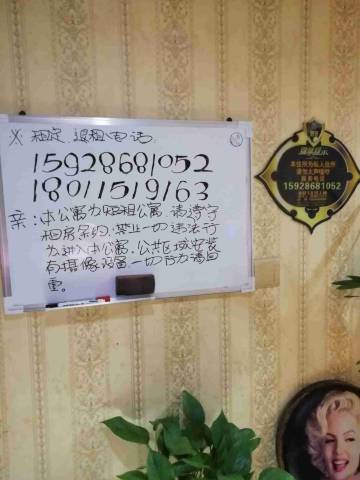 ※ 租定、退租电话
15928681052
18011519163
亲:本公寓为短租公寓.请遵守
租房条约.禁止一切违法行
为进入本公寓.公共区域安装
有摄像设备一切行为请自
重。
温馨提示
本住所为私人住所
服务电话
15928681052